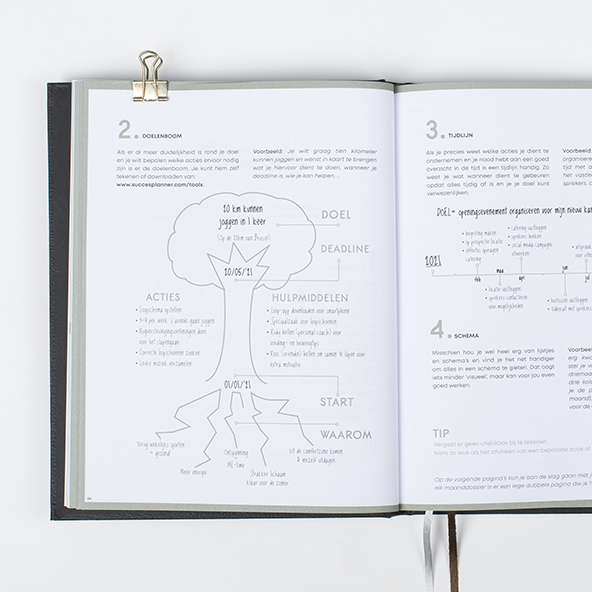 2. DOELENBOOM
Als er al meer duidelijkheid is rond je doel
en je wilt bepalen welke acties ervoor nodig
zijn is er de doelenboom. Je kunt hem zelf
tekenen of downloaden van
www.succesplanner.com/tools.
Voorbeeld: Je wilt graag tien kilometer
kunnen joggen en wenst in kaart te brengen
wat je hiervoor dient te doen, wanneer je
deadline is, wie je kan helpen, ..
10 km kunnen
joggen in 1 keer
(op de 10km van Brussel)
DOEL
DEADLINE
10/05/'21
ACTIES
• Loopschema opstellen
• 3-4 per week 's avonds gaan joggen
voor het slapengaan.
• Correcte loopschoenen zoeken
• Leuke muziek verzamelen
HULPMIDDELEN
• Loop-app downloaden voor smartphone
• Speciaalzaak voor loopschoenen
• Rudy bellen (personal coach) voor
voeding- en beweegtips
• Roos (vriendin) bellen om samen te lopen voor
extra motivatie
01/01/'21
START
WAAROM
Terug wekelijks sporten
= gezond
Meer energie
Ontspanning
ME-time
Strakker lichaam
klaar voor de zomer
Uit de comfortzone komen
& mezelf uitdagen
3. TIJDLIJN
Als je precies weet welke acties je dient te
ondernemen en je nood hebt aan een goed
overzicht in de tijd is een tijdlijn handig. Zo
weet je wat wanneer dient te gebeuren
opdat alles tijdig af is en je je doel kunt
verwezenlijken.
Voorbeeld:
organisere
tijd met
het vastle
sprekers, c
DOEL= openingsevenement organiseren voor mijn nieuw ka
2021
• begroting maken
• op prospectie locatie
• offertes opvragen
catering
• catering vastleggen
• sprekers boeken
• social media campagne
uitwerken
feb
maa
apr
jun
jul
• locatie vastleggen
• sprekers contacteren
voor mogelijkheden
4. SCHEMA
Misschien hou je wel heel erg van lijstjes
en schema's en vind je het net handiger
om alles in een schema te gieten. Dat oogt
iets minder 'visueel', maar kan voor jou even
goed werken.
Voorbeel
erg kwa
driemaa
drie kolo
de
maand),
voor de
TIP
Vergeet er geen checkbox bij te tekenen.
Niets zo leuk als het afvinken van een bepaalde actie of
Op de volgende pagina's kun je aan de slag gaan met j
elk maanddossier is er een lege dubbele pagina die je h